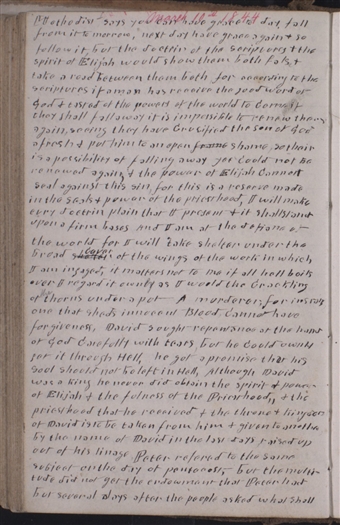 March 10th 1844
Methodist says you can have grace to day, fall
from it to morrow, next day have grace again & so
follow it, but the doctrin of the scriptures & the
spirit of Elijah would show them both fals &
take a road between them both for according to the
scriptures if a man has receive the good word of
God & tasted of the powers of the world to come if
they shall fall away it is impossible to renew them
again, seeing they have Crucified the son of God
afresh & put him to an open frame shame, so their
is a possibility of falling away you could not be
renewed again, & the power of Elijah Cannot
seal against this sin, for this is a reserve made
in the seals & power of the priesthood, I will make
evry doctrin plain that I present & it shall stand
upon a firm bases And I am at the defiance of
the world for I will take shelter under the
broad cover of the wings of the work in which
I am ingaged, it matters not to me if all hell boils
over I regard it ownly as I would the Crackling
of thorns under a pot A murderer, for instance
one that sheds innocent Blood Cannot have
forgiveness, David sought repentance at the hand
of God Carefully with tears, but he could ownly
get it through Hell, he got a promise that his
soul should not be left in Hell, Although David
was a King he never did obtain the spirit & power
of Elijah & the fulness of the Priesthood, & the
priesthood that he received & the throne & kingdom
of David is to be taken from him & given to another
by the name of David in the last days, raised up
out of his linage Peter refered to the same
subject on the day of pentecost, but the multi-
tude did not get the endowment that Peter had
but several days after the people asked what shall